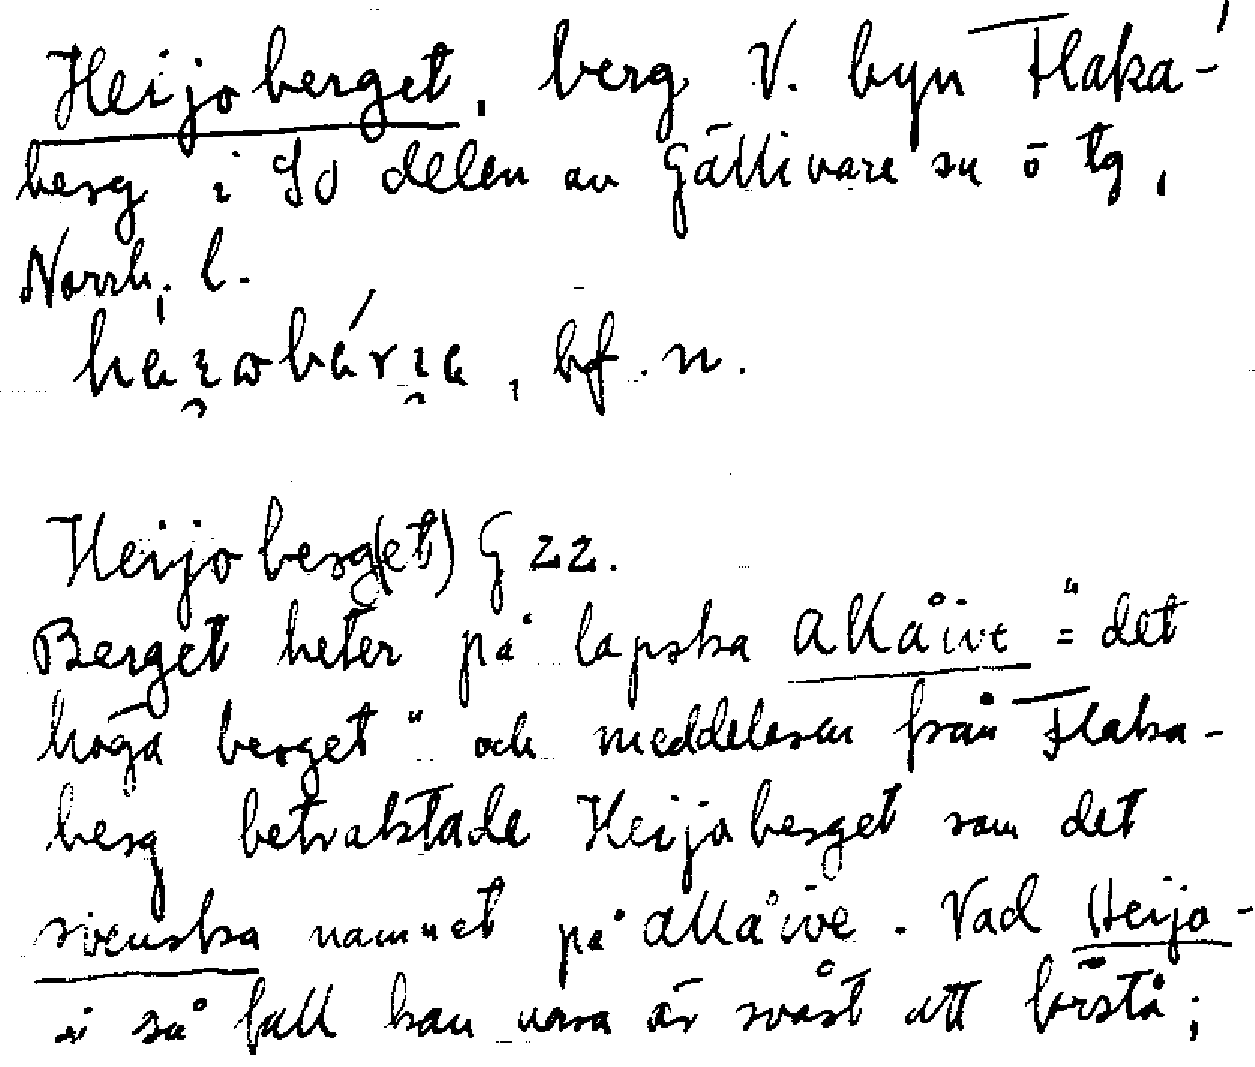 Heijoberget, berg V. byn Flaka-
berg i SO delen av Gällivare sn ö tg,
Norrb. l.
bf. n.
Heijoberg(et) G 22.
Berget heter på lapska Allåive = "det
höga berget" och meddelaren från Flaka-
berg betraktade Heijoberget som det
svenska namnet på Allåive. Vad Heijo-
i så fall kan vara är svårt att förstå;